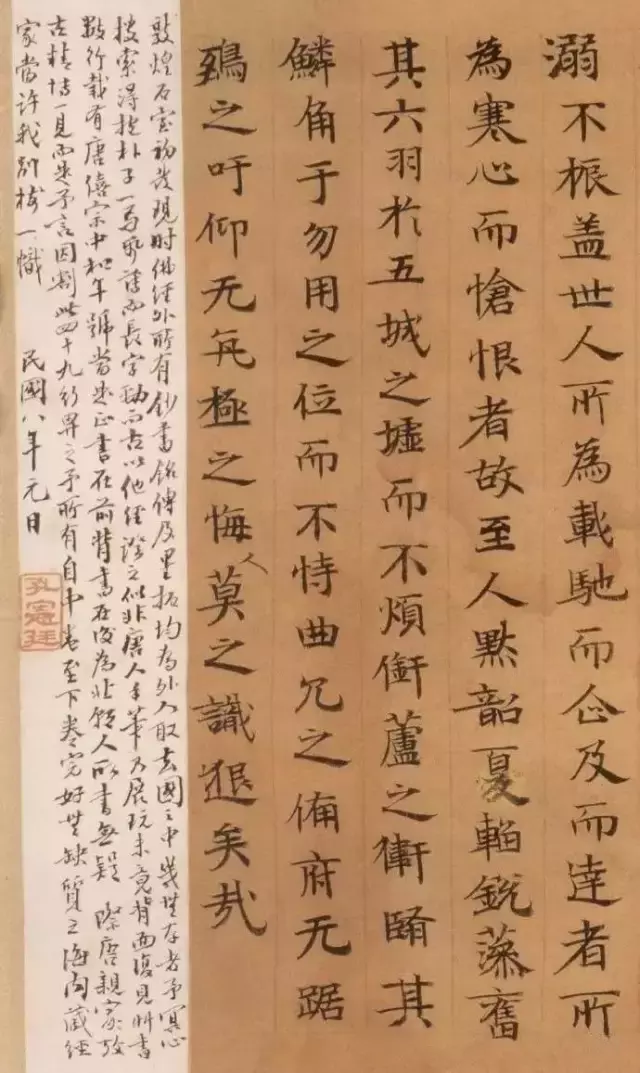 溺不振盖世人所為載馳而企及而達者所
為寒心而愴恨者故至人黙韶夏韜銳藻奮
其六羽於五城之墟而不煩銜蘆之衛翳其
鱗角于勿用之位而不恃曲穴之備府无踞
鵄之吁仰无亢極之悔人莫之識邈矣哉
敦煌石室初發現時佛經外所有鈔書銘傳及墨拓均為外人取去國之中幾無存者予冥心
搜索得抱朴子一 而長字勁而古以他經證之似非唐人手筆乃展玩未竟背面復見斜書
數行載有唐僖宗中和年號當是正書在前背書在後為北朝人所書無疑際唐親家放
古精博一見而是予言因割此四十九行畀之予所有自中卷至下卷完好無缺質之海內藏經
家當許我別樹一幟
民國八年元日
孔憲廷